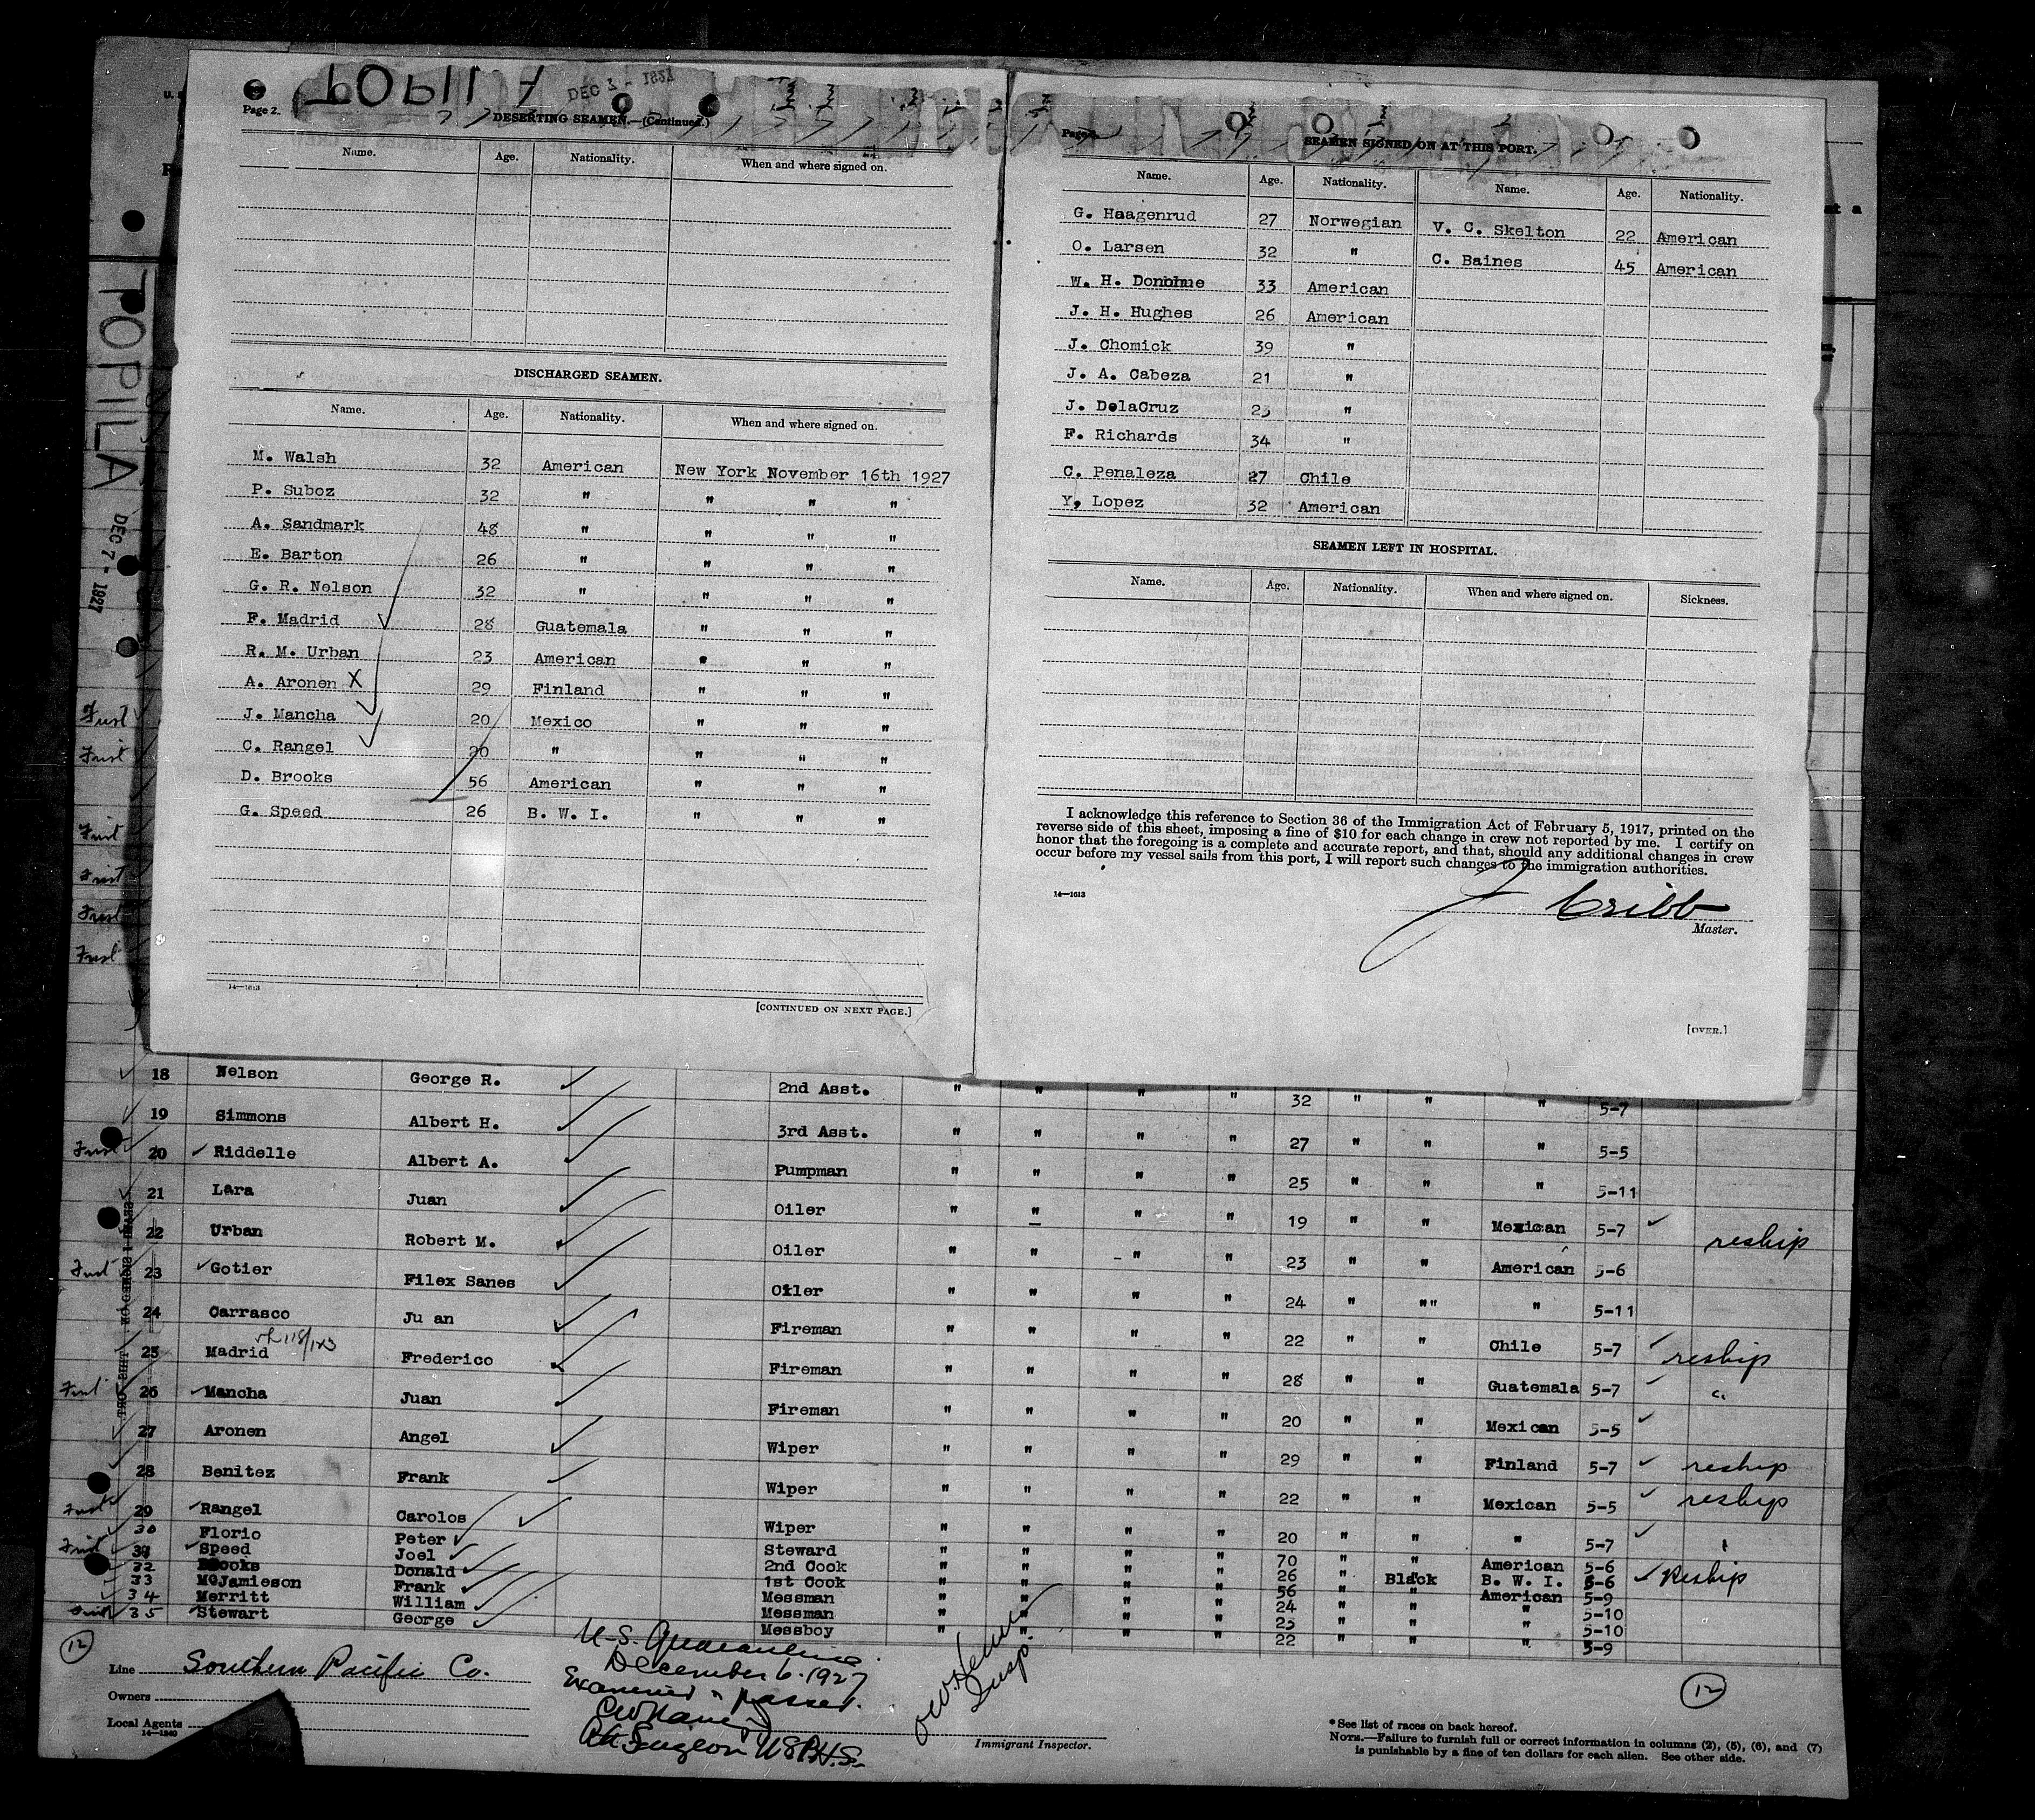 TOPILA
DEC 7 - 1927
Page 2.
DESERTING SEAMEN.—(Continued.)
Name. Age. Nationality. When and where signed on.
DISCHARGED SEAMEN.
Name. Age. Nationality. When and where signed on.
M. Walsh 32 American New York November 16th 1927
P. Suboz 32 " " " "
A. Sandmark 48 " " " "
E. Barton 26 " " " "
G. R. Nelson 32 " " " "
F. Madrid 28 Guatemala " " "
R. M. Urban 23 American " " "
A. Aronen X 29 Finland " " "
J. Mancha 20 Mexico " " "
C. Rangel 20 " " " "
D. Brooks 56 American " " "
G. Speed 26 B. W. I. " " "
14—1613
[CONTINUED ON NEXT PAGE.]
SEAMEN SIGNED ON AT THIS PORT.
Name. Age. Nationality. Name. Age. Nationality.
G. Haagenrud 27 Norwegian V. C. Skelton 22 American
O. Larsen 32 " C. Baines 45 American
W. H. Donohue 33 American
J. H. Hughes 26 American
J. Chomick 39 "
J. A. Cabeza 21 "
J. DelaCruz 23 "
F. Richards 34 "
C. Penaleza 27 Chile
Y, Lopez 32 American
SEAMEN LEFT IN HOSPITAL.
Name. Age. Nationality. When and where signed on. Sickness.
I acknowledge this reference to Section 36 of the Immigration Act of February 5, 1917, printed on the
reverse side of this sheet, imposing a fine of $10 for each change in crew not reported by me. I certify on
honor that the foregoing is a complete and accurate report, and that, should any additional changes in crew
occur before my vessel sails from this port, I will report such changes to the immigration authorities.
14—1613
J Cribb
Master.
[OVER.]
18 Nelson George R. 2nd Asst. " " " " 32 " " " 5-7
19 Simmons Albert H. 3rd Asst. " " " " 27 " " " 5-5
First 20 Riddelle Albert A. Pumpman " " " " 25 " " " 5-11
21 Lara Juan Oiler " " " " 19 " " Mexican 5-7 reship
22 Urban Robert M. Oiler " " " " 23 " " American 5-6
First 23 Gotier Filex Sanes Oiler " " " " 24 " "" " 5-11
24 Carrasco Ju an Fireman " " " " 22 " " Chile 5-7 reship
25 Madrid Frederico Fireman " " " " 28 " " Guatemala 5-7 "
First 26 Mancha Juan Fireman " " " " 20 " " Mexican 5-5
27 Aronen Angel Wiper " " " " 29 " " Finland 5-7 reship
28 Benitez Frank Wiper " " " " 22 " " Mexican 5-5 reship
First 29 Rangel Carolos Wiper " " " " 20 " " " 5-7
30 Florio Peter Steward " " " " 70 " " American 5-6
First 31 Speed Joel 2nd Cook " " " " 26 " Black B. W. I. 5-6 Reship
32 Brooks Donald 1st Cook " " " " 56 " " American 5-9
33 McJamieson Frank Messman " " " " 24 " " " 5-10
34 Merritt William Messman " " " " 23 " " " 5-10
First 35 Stewart George Messboy " " " " 22 " " " 5-9
12
Line Southern Pacific Co.
Owners
Local Agents
14—1240
U. S. Quarantine
December 6. 1927
Examined & passed.
Surgeon USPHS.
Insp.
Immigrant Inspector.
12
*See list of races on back hereof.
NOTE.—Failure to furnish full or correct information in columns (2), (5), (6), and (7)
is punishable by a fine of ten dollars for each alien. See other side.